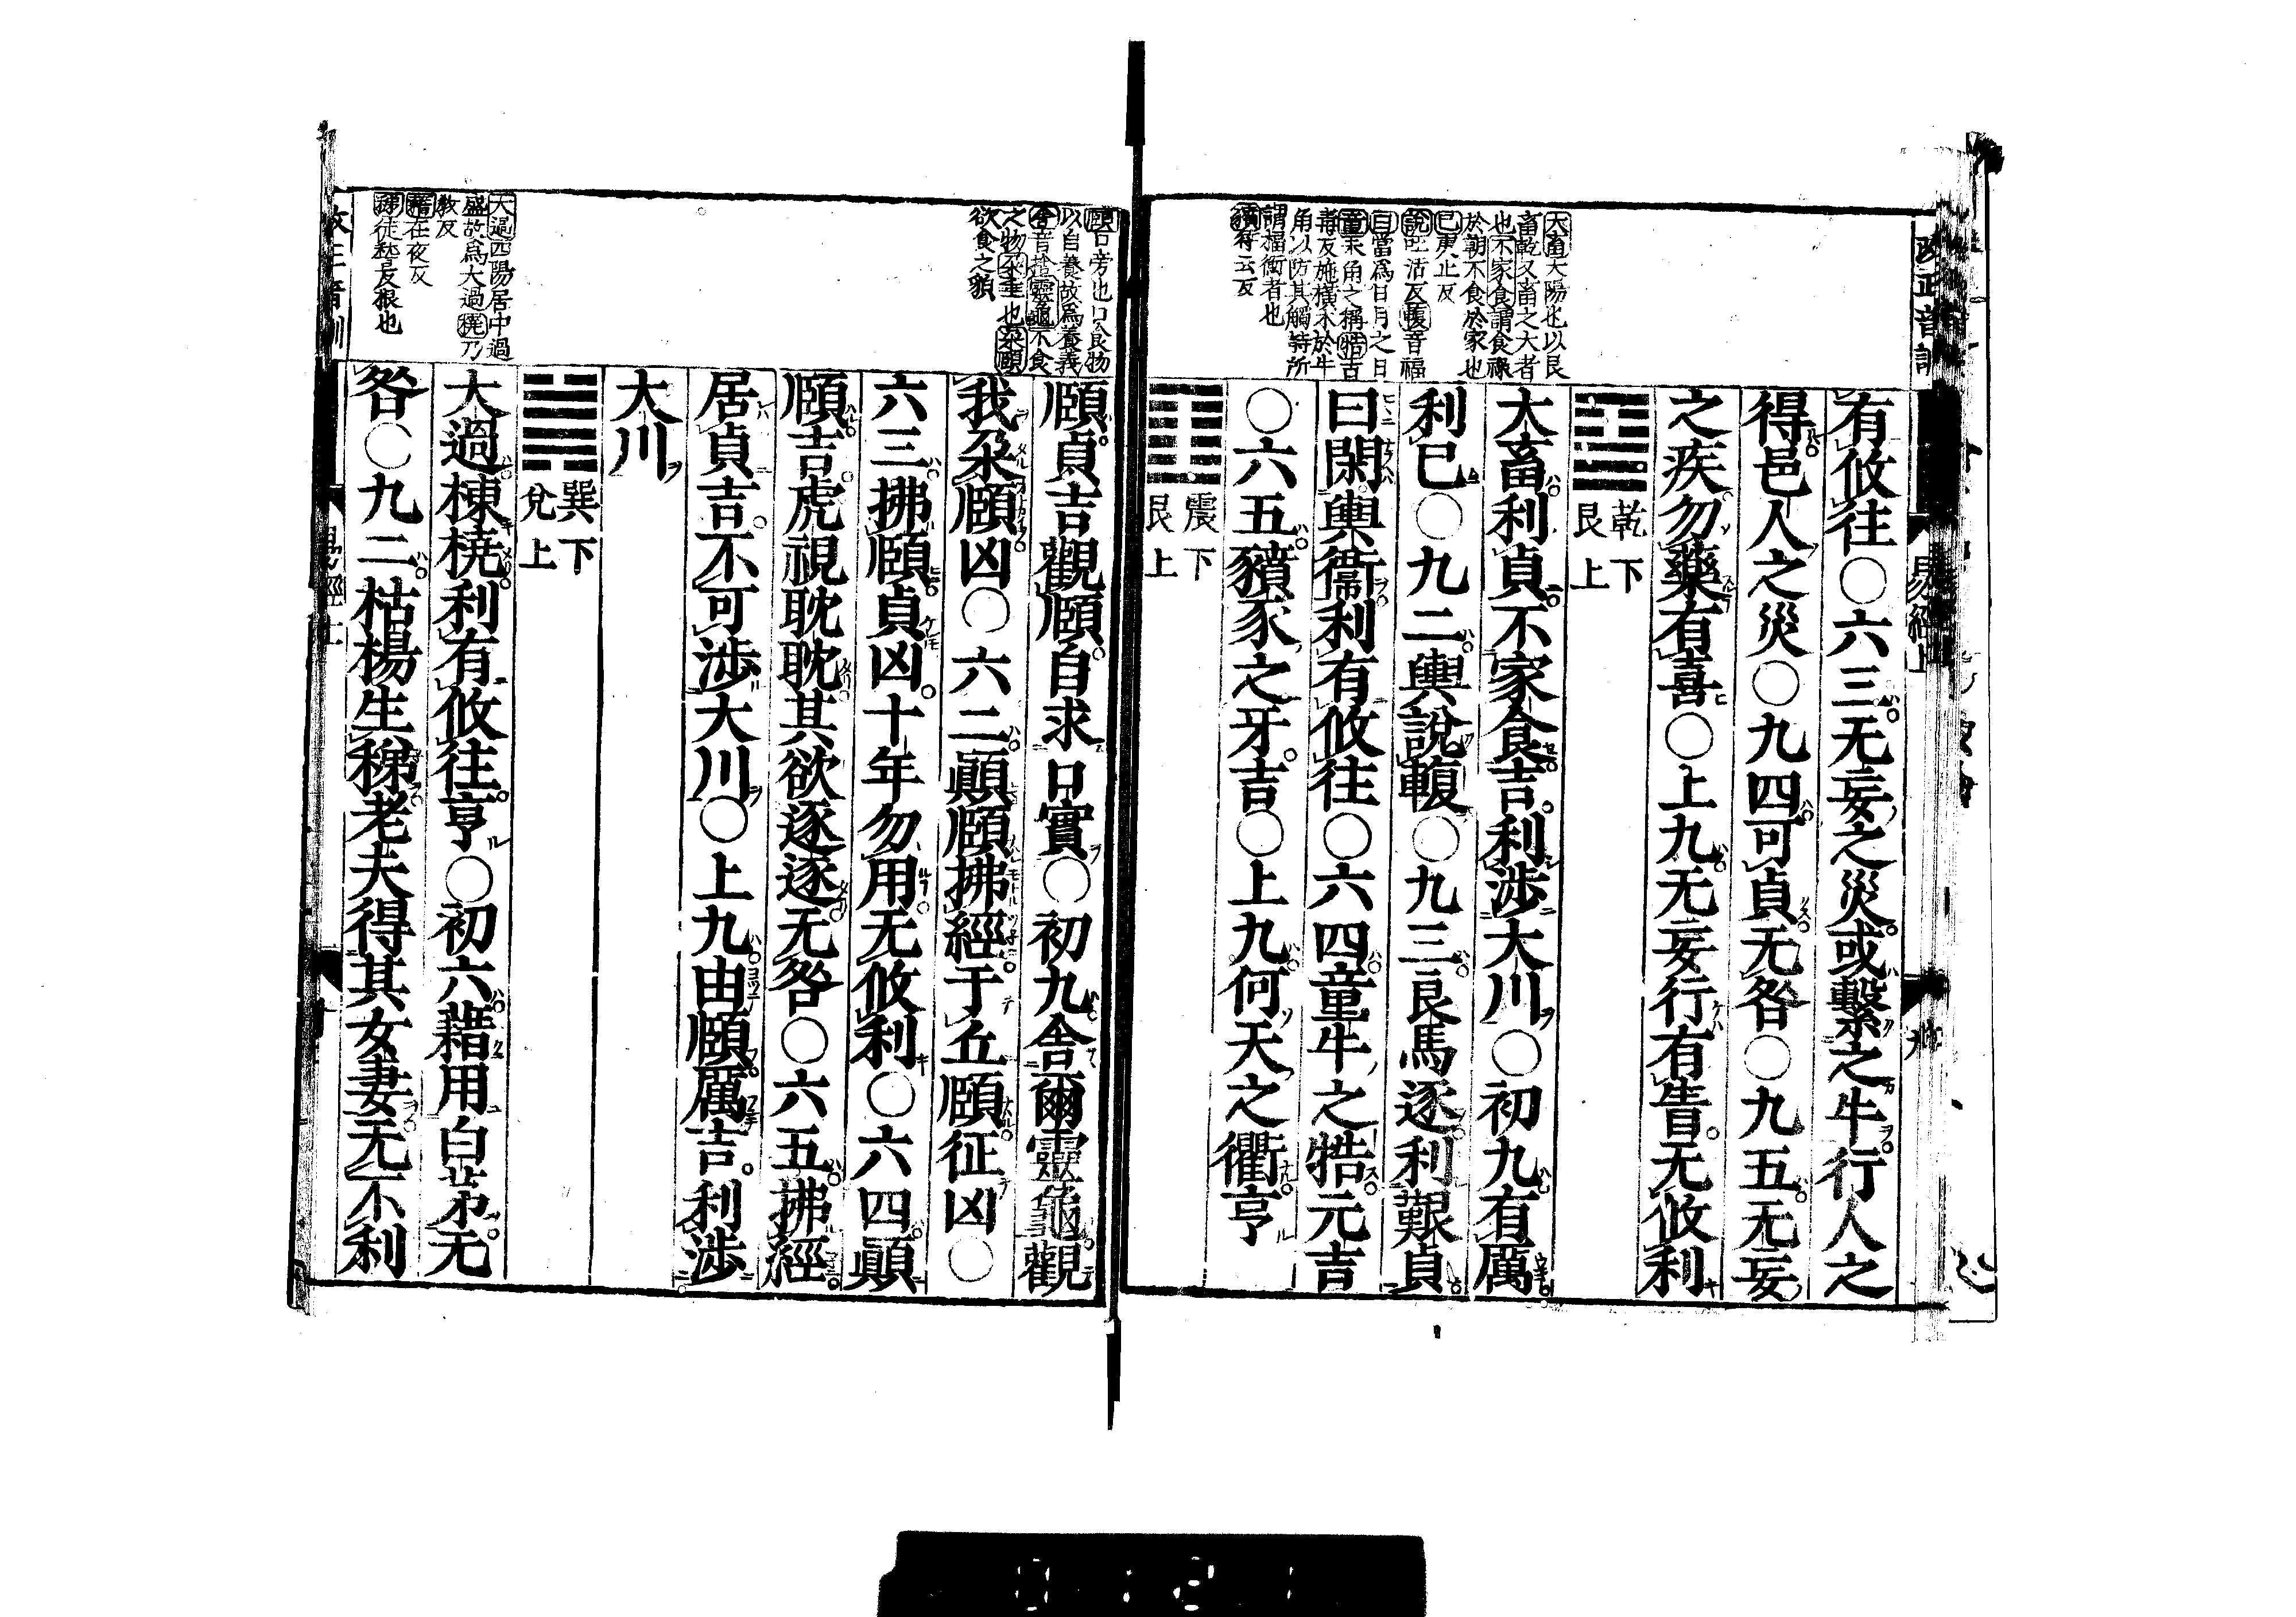 改正音訓
易經上
大畜大陽也以艮
畜乾又畜之大者
也不家食謂食祿
於朝不食於家也
已庚止反
說吐活反輹音福
日當爲日月之日
童未角之稱牿古
毒反施橫木於牛
角以防其觸特所
謂福衡者也
豶符云反
有攸往○六三无妄之災或繫之牛行人之
得邑人之災○九四可貞无咎○九五无妄
之疾勿藥有喜○上九无妄行有眚无攸利
乾下
艮上
大畜利貞不家食吉利涉大川○初九有厲
利已○九二輿說輹○九三良馬逐利艱貞
曰閑輿衞利有攸往○六四童牛之牿元吉
○六五豶豕之牙吉○上九何天之衢亨
震下
艮上
頤口旁也口食物
以自養故爲養義
舍音捨靈龜不食
之物朶垂也朶頤
欲食之貌
大過四陽居中過
盛故爲大過橈乃
敎反
藉在夜反
稊徒稽反根也
頤貞吉觀頤自求口實○初九舍爾靈龜觀
我朶頤凶○六二顚頤拂經于丘頤征凶○
六三拂頤貞凶十年勿用无攸利○六四顚
頤吉虎視耽耽其欲逐逐无咎○六五拂經
居貞吉不可涉大川○上九由頤厲吉利涉
大川
巽下
兌上
大過棟橈利有攸往亨○初六藉用白茅无
咎○九二枯楊生稊老夫得其女妻无不利
0121